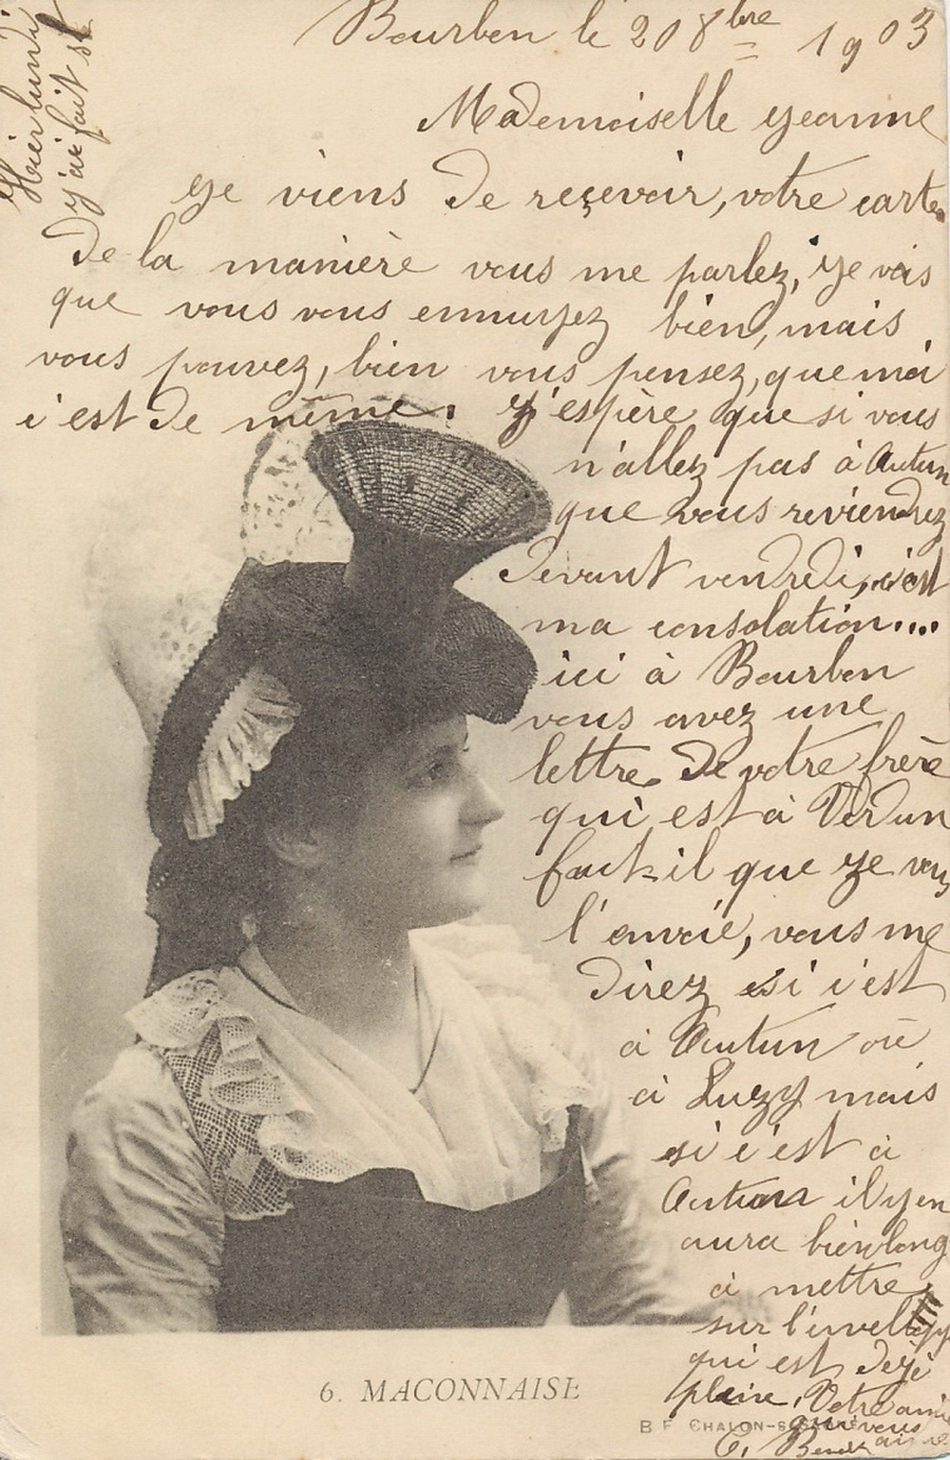 Bourbon le 20 8bre 1903
Mademoiselle Jeanne
Je viens de reçevoir, votre carte
de la manière vous me parlez, je vois
que vous vous ennuyez bien, mais
vous pouvez, bien vous pensez, que moi
c'est de même. J'espère que si vous
n'allez pas à Autun
que vous reviendrez
devant vendredi, c'est
ma consolation....
ici à Bourbon
vous avez une
lettre de votre frère
qui est à Verdun
faut-il que je vous
l'envoie, vous me
direz si c'est
à Autun où
à Luzy mais
si c'est à
Autun il y en
aura bien long
à mettre
sur l'envellopp
qui est dejà
pleine, Votre amie
qui vous aime
C.
Hier lundi
j'ai fait
6. MACONNAISE
B F CHALON-S-SAÔNE